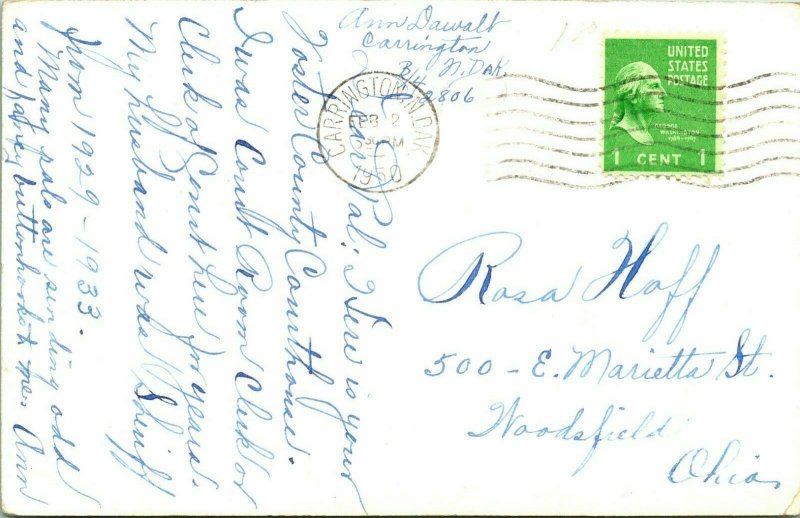 Ann Dawalt
Carrington
N. Dak.
2806
CARRINGTON, N. DAK.
FEB 2
PM
1950
UNITED
STATES
POSTAGE
GEORGE
WASHINGTON
1789-1797
1 CENT 1
Dear Pal: Here is your
Foster County Courthouse.
I was Court Room Clerk or
Clerk of Court here years.
My husband was Sheriff
from 1929 - 1933.
Many pals are sending odd
and fancy buttonhooks me. Ann
Rosa Hoff
500 - E. Marietta St.
Woodsfield
Ohio